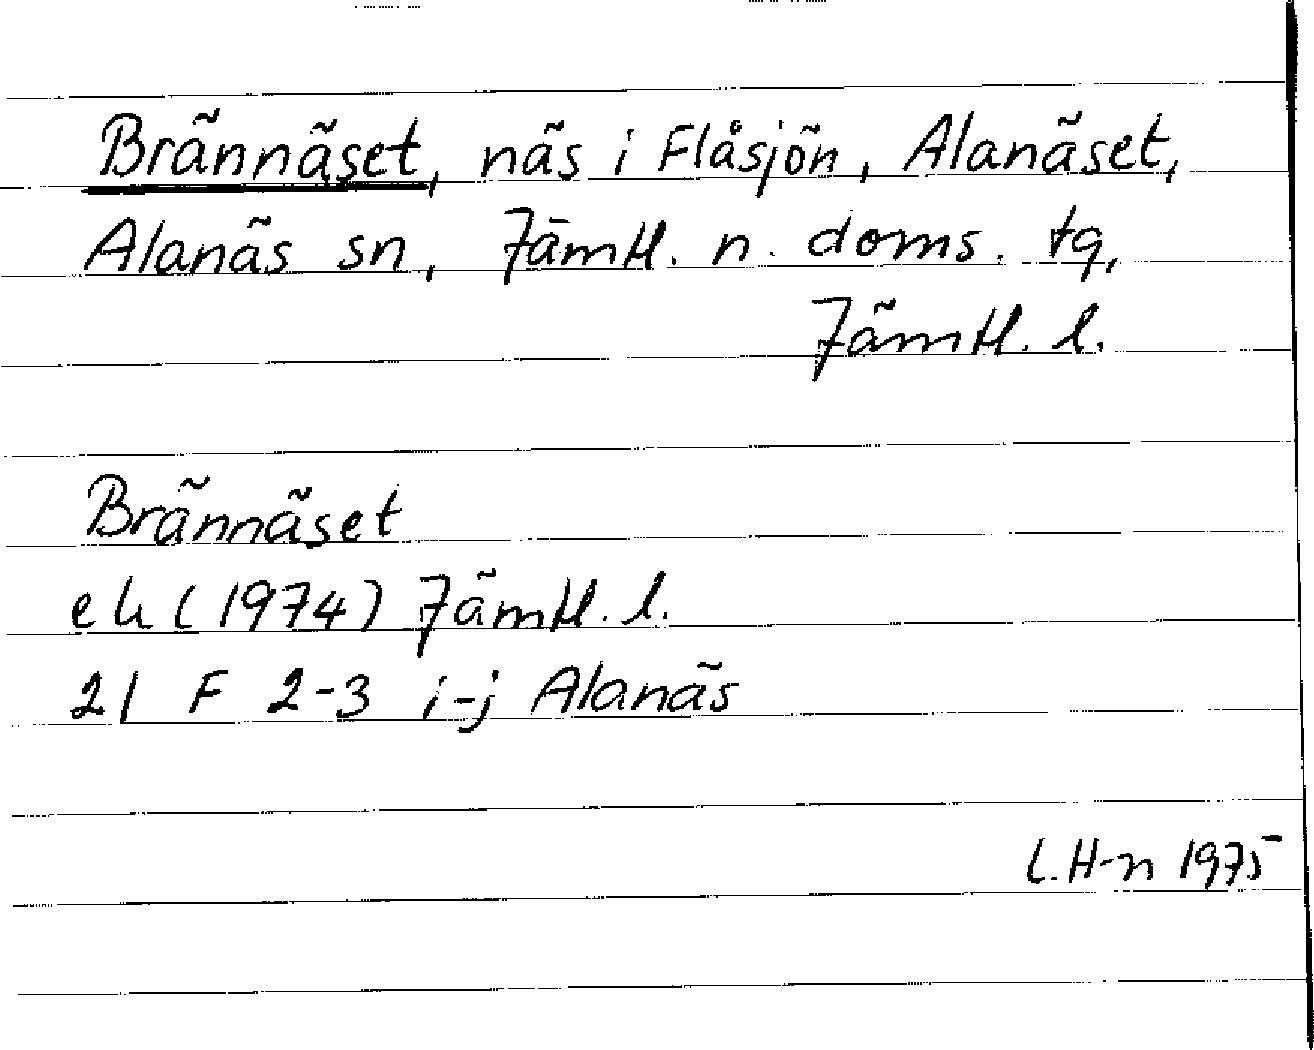 Brännäset, näs i Flåsjön, Alanäset,
Alanäs sn, Jämtl. n. doms. tg,
Jämtl. l.
Brännäset
ek (1974) Jämtl. l.
21 F 2-3 i-j Alanäs
L.H-n 1975